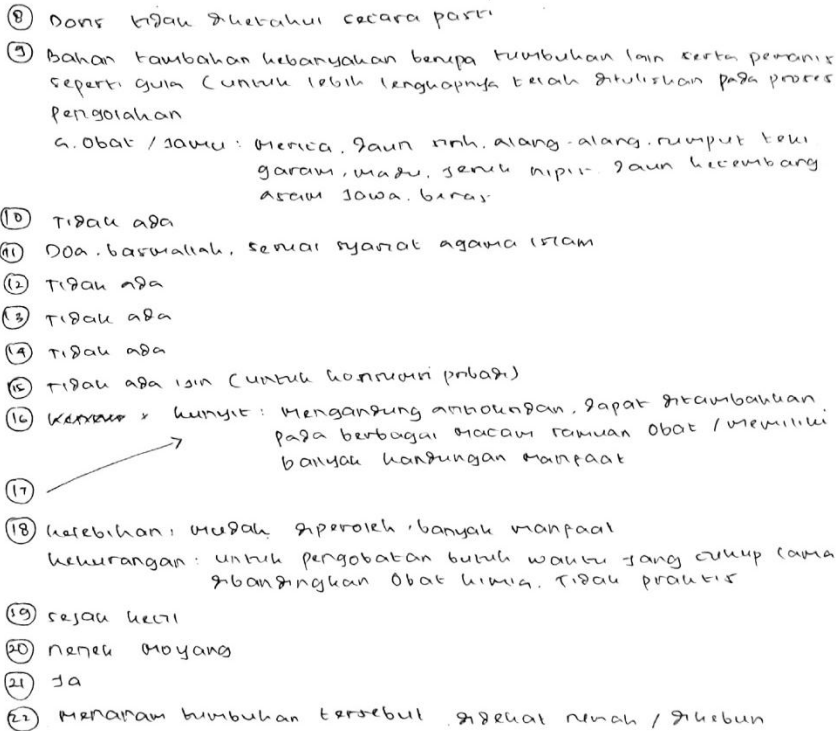 8 Dosis tidak diketahui secara pasti
9 Bahan tambahan kebanyakan berupa tumbuhan lain serta pemanis
seperti gula (untuk lebih lengkapnya telah dituliskan pada proses
pengolahan
a. Obat / Jamu : Merica, daun sirih, alang-alang, rumput teki
garam, madu, jeruk nipis, daun kecembang
asam Jawa, beras
10 Tidak ada
11 Doa, basmallah, sesuai syariat agama islam
12 Tidak ada
13 Tidak ada
14 Tidak ada
15 Tidak ada isin (untuk konsumsi pribadi)
16 kunyit : Mengandung antioksidan, dapat ditambahkan
pada berbagai macam ramuan obat / memiliki
banyak kandungan manfaat
17
18 kelebihan : mudah diperoleh, banyak manfaat
kekurangan : untuk pengobatan butuh waktu yang cukup lama
dibandingkan obat kimia. Tidak praktis
19 sejak kecil
20 nenek moyang
21 Ja
22 Menanam tumbuhan tersebut didekat rumah / dikebun